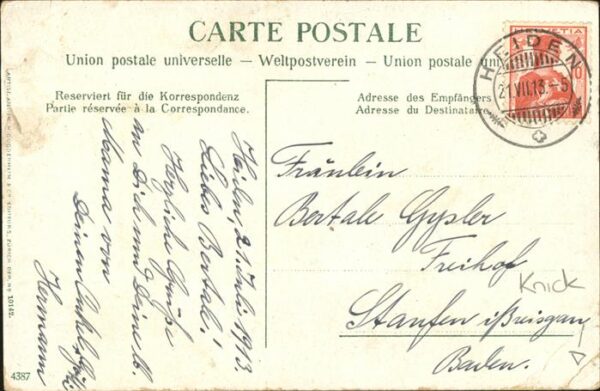 CARTE POSTALE
Union postale universelle – Weltpostverein – Union postale uni
Reserviert für die Korrespondenz
Partie réservée à la Correspondance.
Adresse des Empfängers
Adresse du Destinataire
HEIDEN
21.VII.13.-5
Heiden, 21. Juli 1913.
Liebes Bertale!
Herzliche Grüße
an Dich und Deine lb.
Mama von
Deinem Onkel
Hermann
Fräulein
Bertale Gysler
Freihof
Staufen i/Breisgau
Baden.
Knick
4387